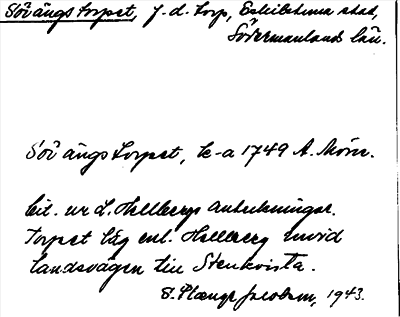 Söv ängs torpet, f. d. torp, Eskilstuna stad,
Södermanland län.
Söv ängs Torpet, k-a 1749 A. Mörn.
Cit. ur L. Hellbergs anteckningar.
Torpet låg enl. Hellberg invid
landsvägen till Stenkvista.
S. Plænge Jacobson, 1943.